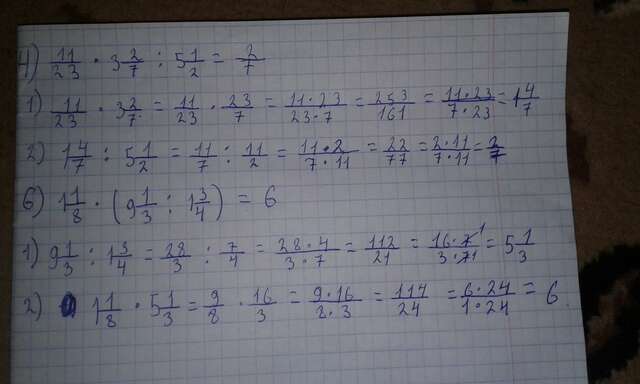 4) 11/23 · 3 2/7 : 5 1/2 = 2/7
1) 11/23 · 3 2/7 = 11/23 · 23/7 = 11·23/23·7 = 253/161 = 11·23/7·23 = 1 4/7
2) 1 4/7 : 5 1/2 = 11/7 : 11/2 = 11·2/7·11 = 22/77 = 2·11/7·11 = 2/7
6) 1 1/8 · (9 1/3 : 1 3/4) = 6
1) 9 1/3 : 1 3/4 = 28/3 : 7/4 = 28·4/3·7 = 112/21 = 16·7/3·7 = 5 1/3
2) 1 1/8 · 5 1/3 = 9/8 · 16/3 = 9·16/8·3 = 144/24 = 6·24/1·24 = 6